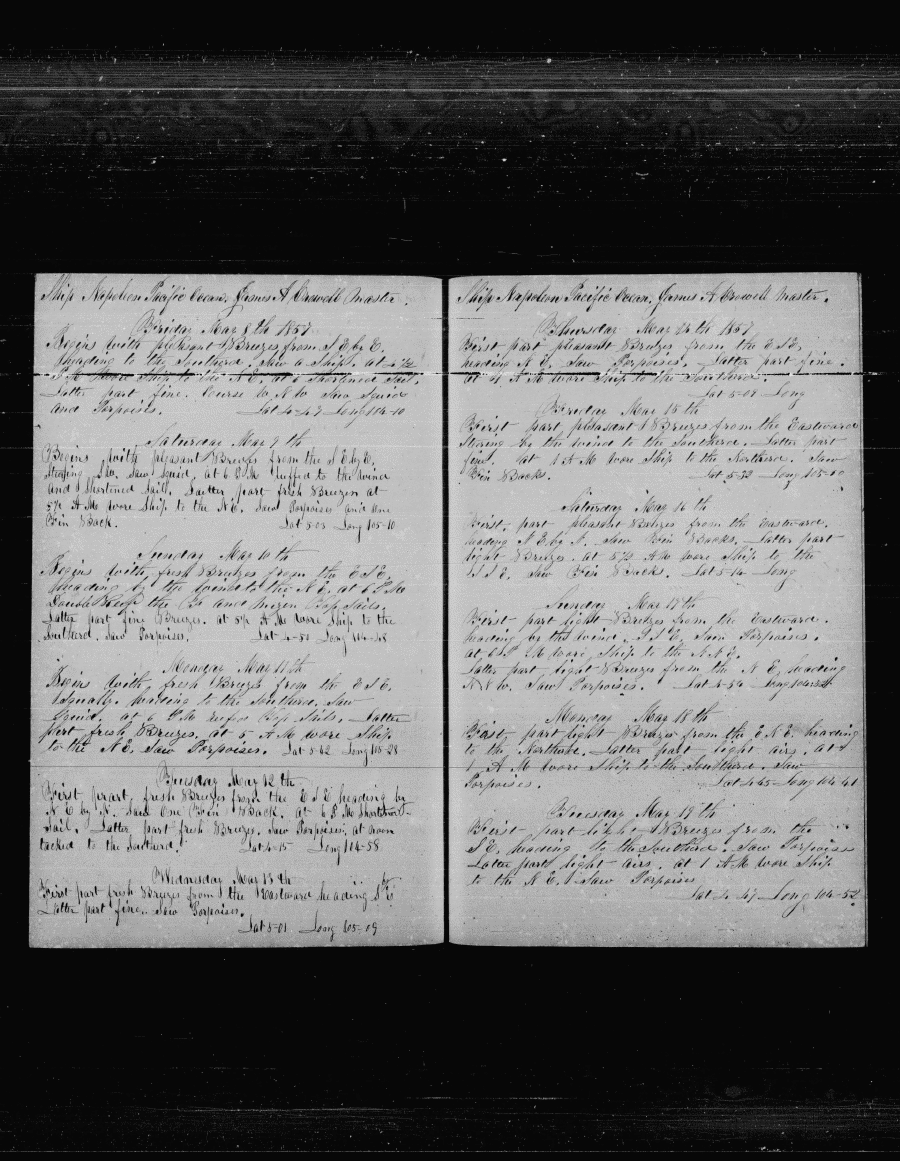 Ship Napoleon Pacific Ocean. James A Crowell Master.
Friday May 8th 1857
Begins with pleasant Breezes from S E by E.
heading to the Southerd. Saw a Ship. at 4 1/2
P M Wore Ship to the N E. at 6 Shortened Sail.
Latter part fine. Course W N W Saw Squid
and Porpoises. Lat 4-47 Long 104-10
Saturday May 9th
Begins with pleasant Breezes from the S E by E.
Steering S W. Saw Squid, at 6 P M luffed to the wind
and Shortened Sail. Latter part fresh Breezes at
5 1/2 A M wore Ship to the N E. Saw Porpoises and one
Fin Back. Lat 5-03 Long 105-10
Sunday May 10th
Begins with fresh Breezes from the E S E.
heading by the wind to the N E. at 6 P M
Double Reef the and Mizen Top Sails.
Latter part fine Breezes. at 5 1/2 A M Wore Ship to the
Southerd. Saw Porpoises. Lat 4-51 Long 104-48
Monday May 11th
Begins with fresh Breezes from the E S E.
Squally. heading to the Southerd. Saw
Squid. at 6 P M reefed Top Sails. Latter
part fresh Breezes. at 5 A M wore Ship
to the N E. Saw Porpoises. Lat 5-42 Long 105-28
Tuesday May 12th
First part, fresh Breezes from the E S E heading by
N E by N. Saw One Fin Back. at 6 P M Shortened
Sail. Latter part fresh Breezes. Saw Porpoises; at noon
tacked to the Southerd. Lat 4-15 Long 104-58
Wednesday May 13th
First part fresh Breezes from the Eastward heading N E
Latter part fine. Saw Porpoises.
Lat 5-01 Long 105-09
Ship Napoleon Pacific Ocean. James A Crowell Master.
Thursday May 14th 1857
First part pleasant Breezes from the E S E,
heading N E. Saw Porpoises. Latter part fine.
at 4 A M Wore Ship to the Southerd.
Lat 5-01 Long
Friday May 15th
First part, pleasant Breezes from the Eastward
Stering by the wind to the Southerd. Latter part
fine. at 1 A M Wore Ship to the Northerd. Saw
Fin Backs. Lat 5-33 Long 105-00
Saturday May 16th
First, part pleasant Breezes from the Eastward.
heading N E by N. Saw Fin Backs. Latter part
light Breezes. at 5 1/2 A M wore Ship to the
S S E. Saw Fin Backs. Lat 5-14 Long
Sunday May 17th
First part light Breezes from the Eastward.
heading by the wind. S S E, Saw Porpoises.
at 6 P M wore Ship to the N N E.
Latter part light Breezes from the N E, heading
N N W. Saw Porpoises. Lat 4-54 Long 104-34
Monday May 18th
First, part light Breezes from the E N E. heading
to the Northerd. Latter part light airs. at
1 A M Wore Ship to the Southerd. Saw
Porpoises. Lat 4-45 Long 104-41
Tuesday May 19th
First part light Breezes from the
S E, heading to the Southerd. Saw Porpoises
Latter part light airs. at 1 A M Wore Ship
to the N E. Saw Porpoises
Lat 4-47 Long 104-52